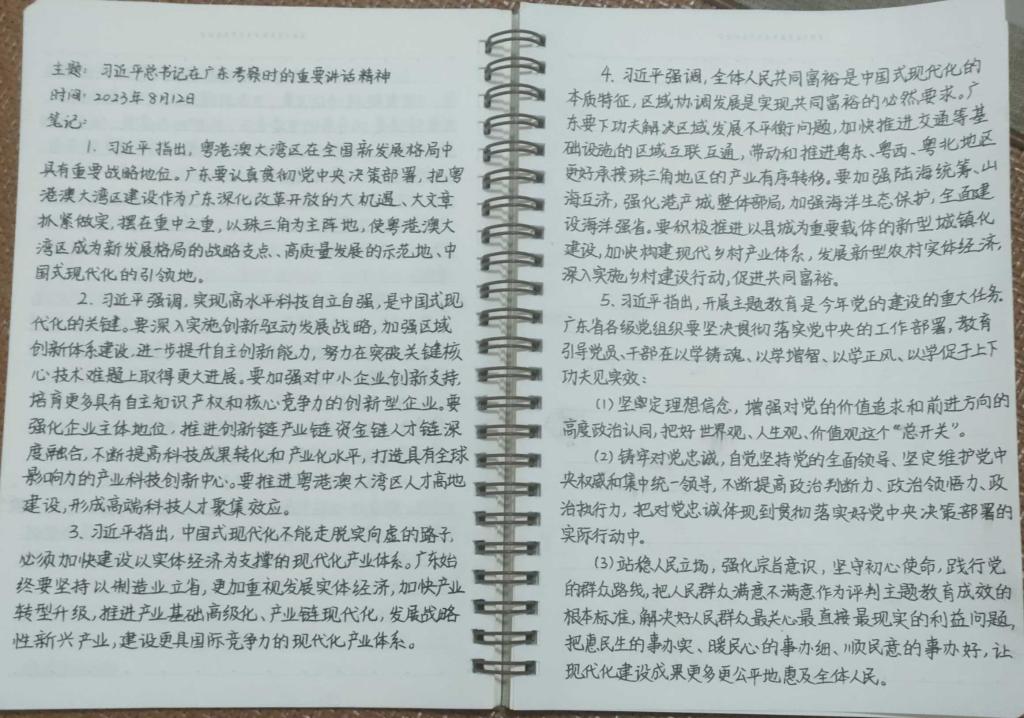 主题: 习近平总书记在广东考察时的重要讲话精神
时间: 2023年8月12日
笔记:
1. 习近平指出，粤港澳大湾区在全国新发展格局中
具有重要战略地位。广东要认真贯彻党中央决策部署，把粤
港澳大湾区建设作为广东深化改革开放的大机遇、大文章
抓紧做实，摆在重中之重，以珠三角为主阵地，使粤港澳大
湾区成为新发展格局的战略支点、高质量发展的示范地、中
国式现代化的引领地。
2. 习近平强调，实现高水平科技自立自强，是中国式现
代化的关键。要深入实施创新驱动发展战略，加强区域
创新体系建设，进一步提升自主创新能力，努力在突破关键核
心技术难题上取得更大进展。要加强对中小企业创新支持，
培育更多具有自主知识产权和核心竞争力的创新型企业。要
强化企业主体地位，推进创新链产业链资金链人才链深
度融合，不断提高科技成果转化和产业化水平，打造具有全球
影响力的产业科技创新中心。要推进粤港澳大湾区人才高地
建设，形成高端科技人才聚集效应。
3. 习近平指出，中国式现代化不能走脱实向虚的路子，
必须加快建设以实体经济为支撑的现代化产业体系。广东始
终要坚持以制造业立省，更加重视发展实体经济，加快产业
转型升级，推进产业基础高级化、产业链现代化，发展战略
性新兴产业，建设更具国际竞争力的现代化产业体系。
4. 习近平强调，全体人民共同富裕是中国式现代化的
本质特征，区域协调发展是实现共同富裕的必然要求。广
东要下功夫解决区域发展不平衡问题，加快推进交通等基
础设施的区域互联互通，带动和推进粤东、粤西、粤北地区
更好承接珠三角地区的产业有序转移。要加强陆海统筹、山
海互济，强化港产城整体部局，加强海洋生态保护，全面建
设海洋强省。要积极推进以县城为重要载体的新型城镇化
建设，加快构建现代乡村产业体系，发展新型农村实体经济，
深入实施乡村建设行动，促进共同富裕。
5. 习近平指出，开展主题教育是今年党的建设的重大任务。
广东省各级党组织要坚决贯彻落实党中央的工作部署，教育
引导党员、干部在以学铸魂、以学增智、以学正风、以学促干上下
功夫见实效:
(1) 坚定理想信念，增强对党的价值追求和前进方向的
高度政治认同，把好世界观、人生观、价值观这个“总开关”。
(2) 铸牢对党忠诚，自觉坚持党的全面领导、坚定维护党中
央权威和集中统一领导，不断提高政治判断力、政治领悟力、政
治执行力，把对党忠诚体现到贯彻落实好党中央决策部署的
实际行动中。
(3) 站稳人民立场，强化宗旨意识，坚守初心使命，践行党
的群众路线，把人民群众满意不满意作为评判主题教育成效的
根本标准，解决好人民群众最关心最直接最现实的利益问题，
把惠民生的事办实、暖民心的事办细、顺民意的事办好，让
现代化建设成果更多更公平地惠及全体人民。